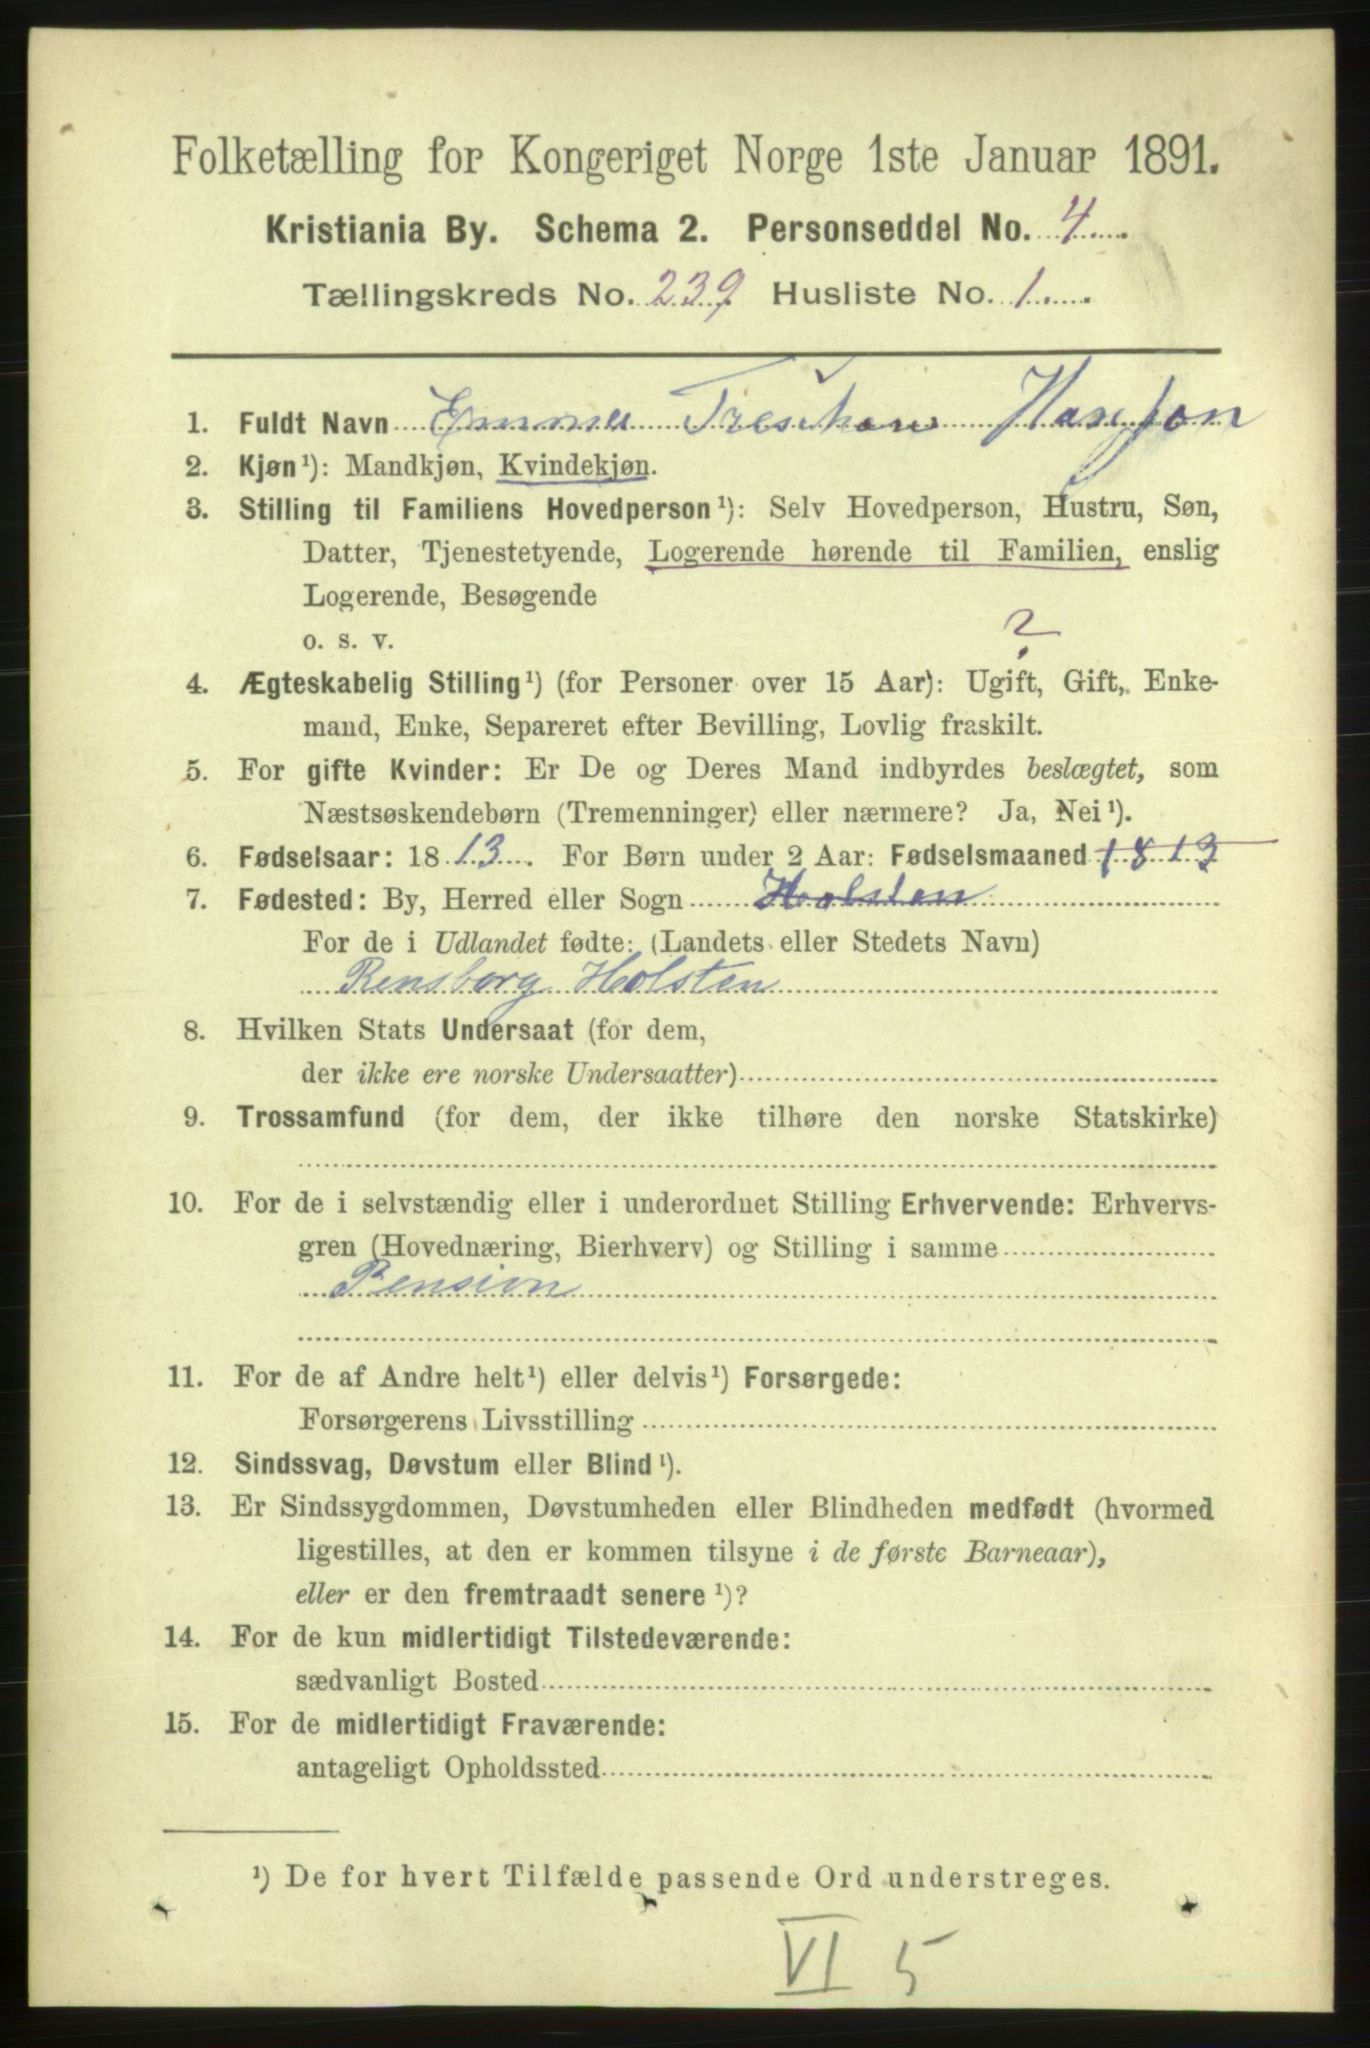 Folketælling for Kongeriget Norge 1ste Januar 1891.
Kristiania By. Schema 2. Personseddel No. 4
Tællingskreds No. 239 Husliste No. 1
1. Fuldt Navn Emma Treschow
2. Kjøn¹): Mandkjøn, Kvindekjøn.
3. Stilling til Familiens Hovedperson¹): Selv Hovedperson, Hustru, Søn,
Datter, Tjenestetyende, Logerende hørende til Familien, enslig
Logerende, Besøgende
o. s. v.
?
4. Ægteskabelig Stilling¹) (for Personer over 15 Aar): Ugift, Gift, Enke-
mand, Enke, Separeret efter Bevilling, Lovlig fraskilt.
5. For gifte Kvinder: Er De og Deres Mand indbyrdes beslægtet, som
Næstsøskendebørn (Tremenninger) eller nærmere? Ja, Nei¹).
6. Fødselsaar: 1813. For Børn under 2 Aar: Fødselsmaaned 1813
7. Fødested: By, Herred eller Sogn Holsten
For de i Udlandet fødte: (Landets eller Stedets Navn)
Rensborg Holsten
8. Hvilken Stats Undersaat (for dem,
der ikke ere norske Undersaatter)
9. Trossamfund (for dem, der ikke tilhøre den norske Statskirke)
10. For de i selvstændig eller i underordnet Stilling Erhvervende: Erhvervs-
gren (Hovednæring, Bierhverv) og Stilling i samme
Pension
11. For de af Andre helt¹) eller delvis¹) Forsørgede:
Forsørgerens Livsstilling
12. Sindssvag, Døvstum eller Blind¹).
13. Er Sindssygdommen, Døvstumheden eller Blindheden medfødt (hvormed
ligestilles, at den er kommen tilsyne i de første Barneaar),
eller er den fremtraadt senere¹)?
14. For de kun midlertidigt Tilstedeværende:
sædvanligt Bosted
15. For de midlertidigt Fraværende:
antageligt Opholdssted
¹) De for hvert Tilfælde passende Ord understreges.
VI 5